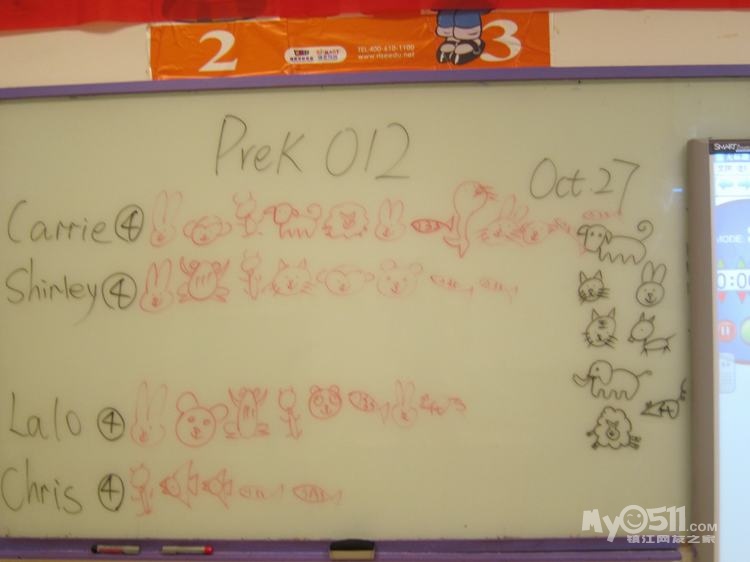 2
3
TEL:400-610-1100
www.riseedu.net
PreK 012
Oct. 27
Carrie ④
Shirley ④
Lalo ④
Chris ④
SMART
MODE
My0511.COM
镇江网友之家